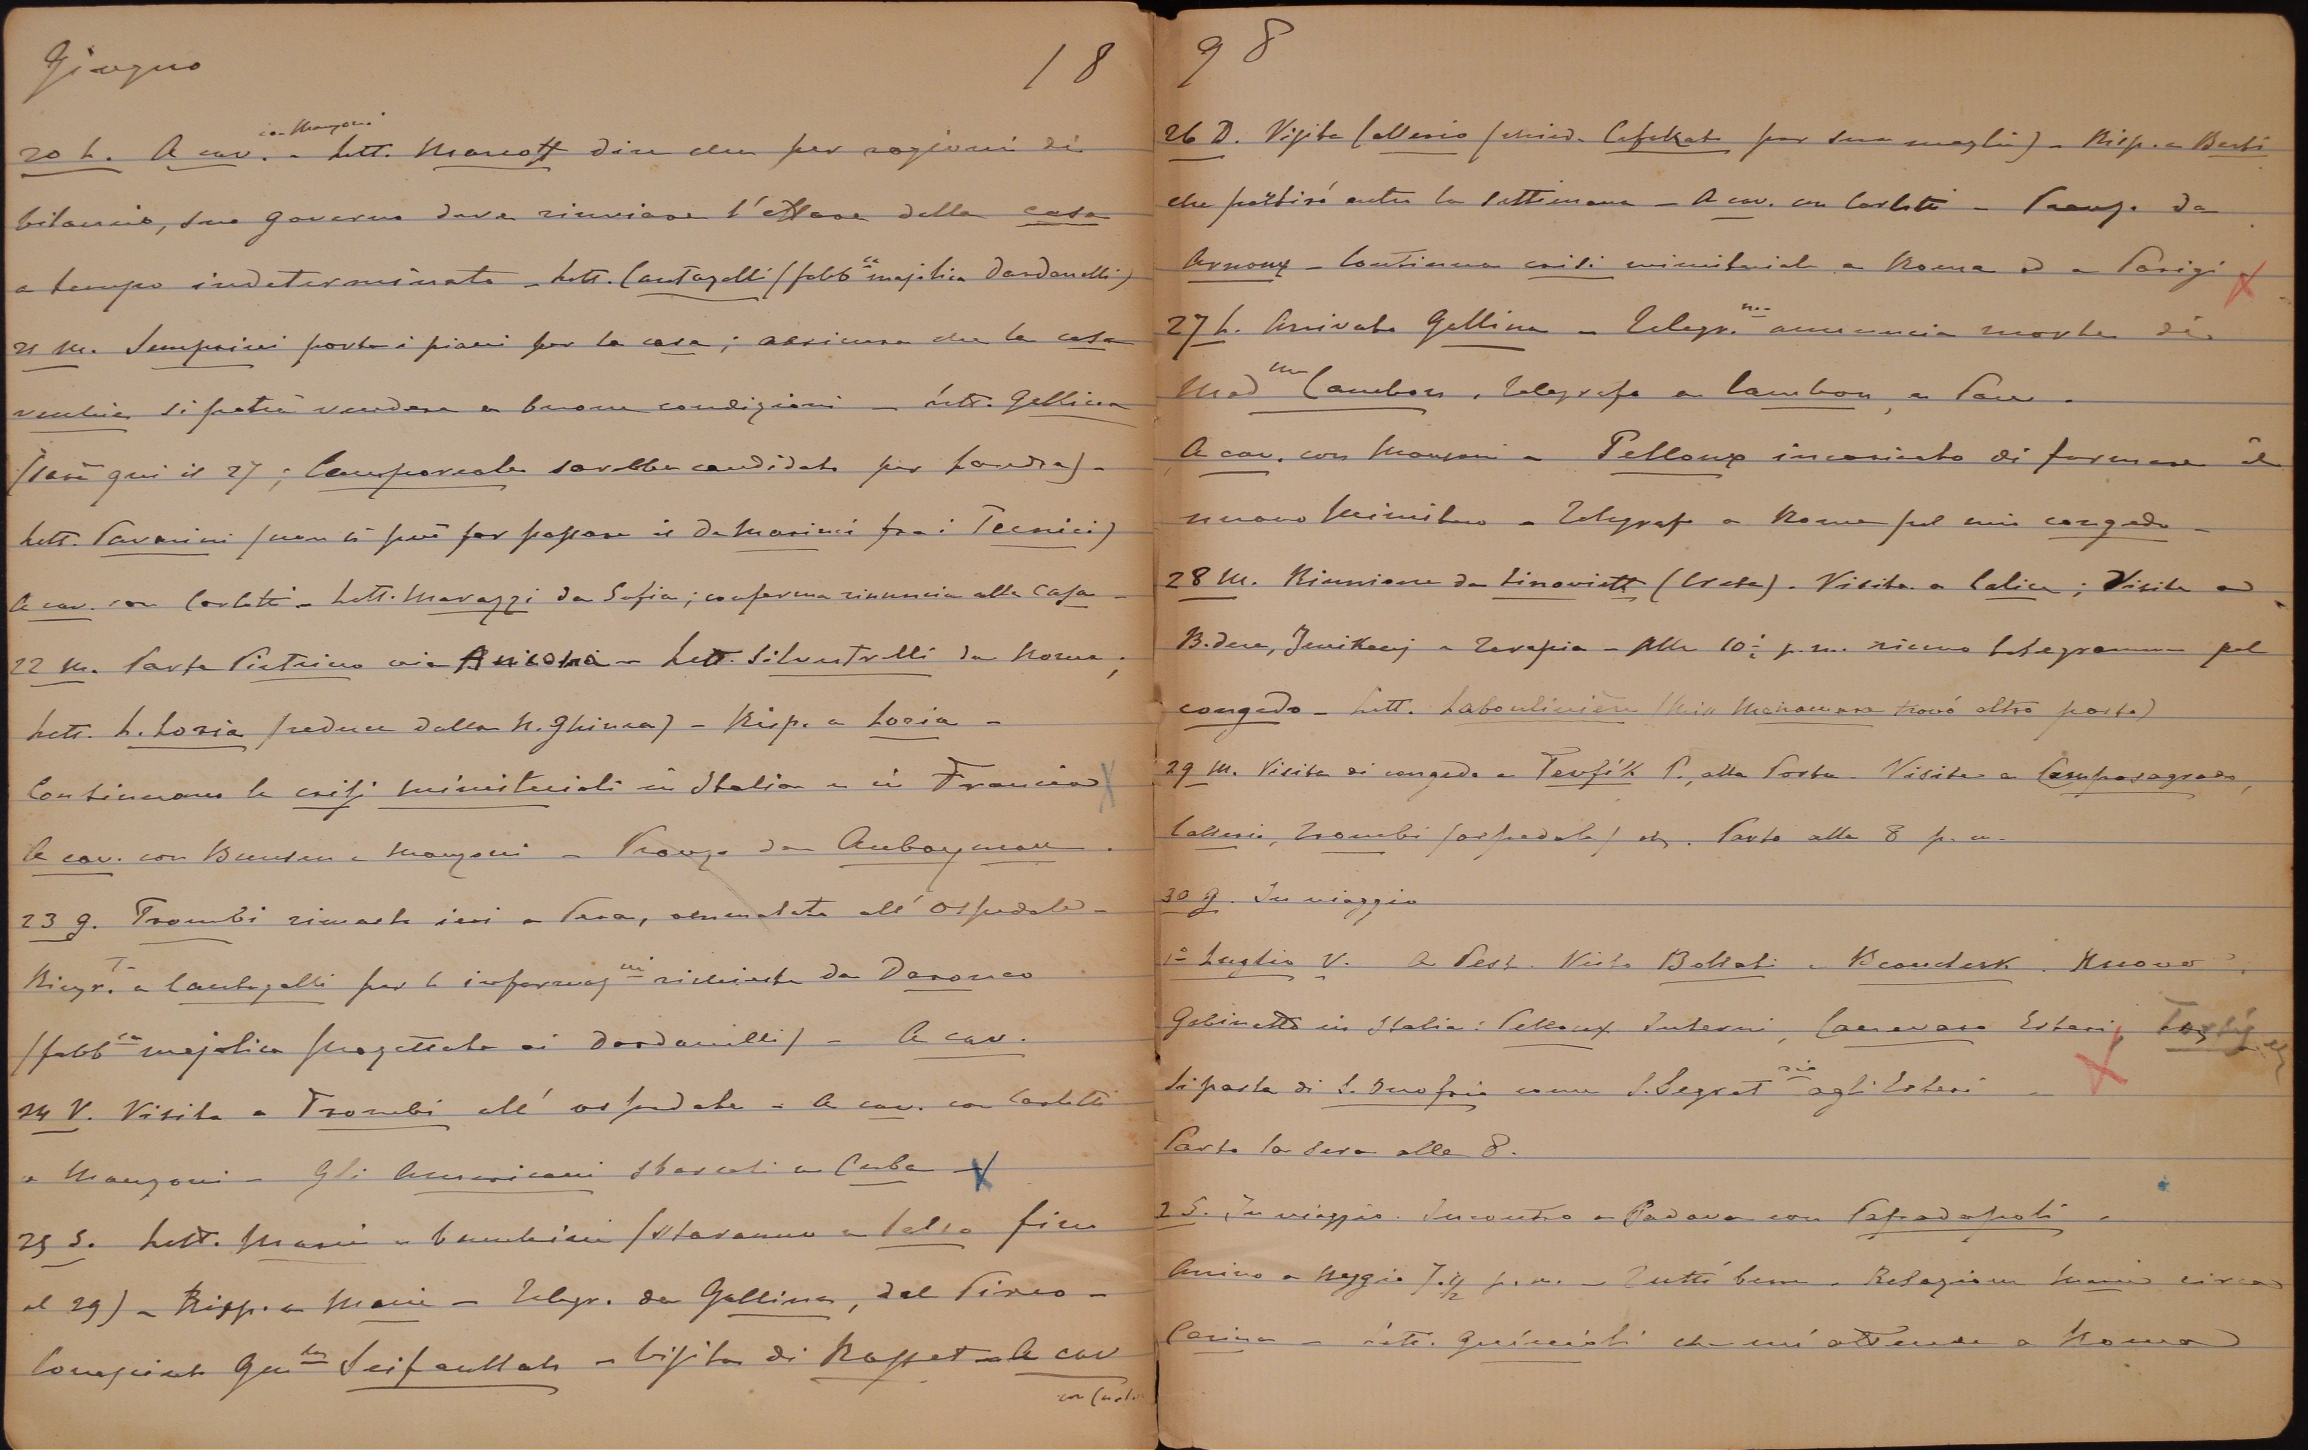 Giugno 18
con Manzoni
20 L. A cav. - Lett. Marcoff dice che per ragioni di
bilancio, suo governo deve rinviare l'affare della casa
a tempo indeterminato - Lett. Cantagalli (fabb.ca majolica Dardanelli)
21 M. Semprini porta i piani per la casa; assicura che la casa
vecchia si potrà vendere a buone condizioni - Lett. Gallina
(sarà qui il 27; Camporeale sarebbe candidato per Londra) -
Lett. Pavarini (non si può far passare il De Marini fra i Tecnici)
A cav. con Carletti - Lett. Marazzi da Sofia; conferma rinuncia alla Casa -
22 M. Parte Pietrino via Ancona - Lett. Silvestrelli da Roma;
Lett. L. Loria (reduce dalla N. Ghinea) - Risp. a Loria -
Continuano le crisi ministeriali in Italia e in Francia X
A cav. con Bunsen e Manzoni - Pranzo da Auboyneau.
23 G. Trombi rimasto ieri a Pera, ammalato all'Ospedale -
a Cantagalli per le informaz.ni richieste da Daronco
(fabb.ca majolica progettata ai Dardanelli) - A cav.
24 V. Visita a Trombi all'ospedale - A cav. con Carletti
e Manzoni - Gli Americani sbarcati a Cuba - X
25 S. Lett. Marie e bambini (staranno a Salso fino
al 29) - Risp. a Marie - Telegr. da Gallina, dal Pireo -
Seifoullah - Visita di - A cav
con Carletti
98
26 D. Visita Calleria per sua moglie) - Risp. a Berti
che partirà entro la settimana - A cav. con Carletti - Pranzo da
Arnoux - Continua crisi ministeriale a Roma ed a Parigi X
27 L. Arrivato Gallina - Telegr. annuncia morte di
Mad.me Cambon, telegrafo a Cambon, a Pau.
A cav. con Manzoni - Pelloux incaricato di formare il
nuovo Ministero - Telegrafo a Roma pel mio congedo -
28 M. Riunione da Zinovieff (Creta). Visita a Calice; Visite ad
B.dere, Jenikeuj e Terapia - Alle 10½ p.m. ricevo telegramma pel
congedo - Lett. Laboulinière (Miss trovò altro posto)
29 M. Visita di congedo a Tevfik P., alla Porta. Visite a Camposagrado,
Calleria, Trombi (ospedale) etc. Parto alle 8 p.m.
30 G. In viaggio
1° Luglio V. A Pest. Visto Bottati e Beauclerk. Nuovo
Gabinetto in Italia: Pelloux Interni, Canevaro Esteri,
Si parla di S. Onofrio come S. Segret.rio agli Esteri - X
Parto la sera alle 8.
2 S. In viaggio. Incontro a Padova con Papadopoli.
Arrivo a Reggio 7.½ p.m. - Tutti bene. Relazione Marie circa
Carina - Lett. Guicciòli che mi attende a Roma